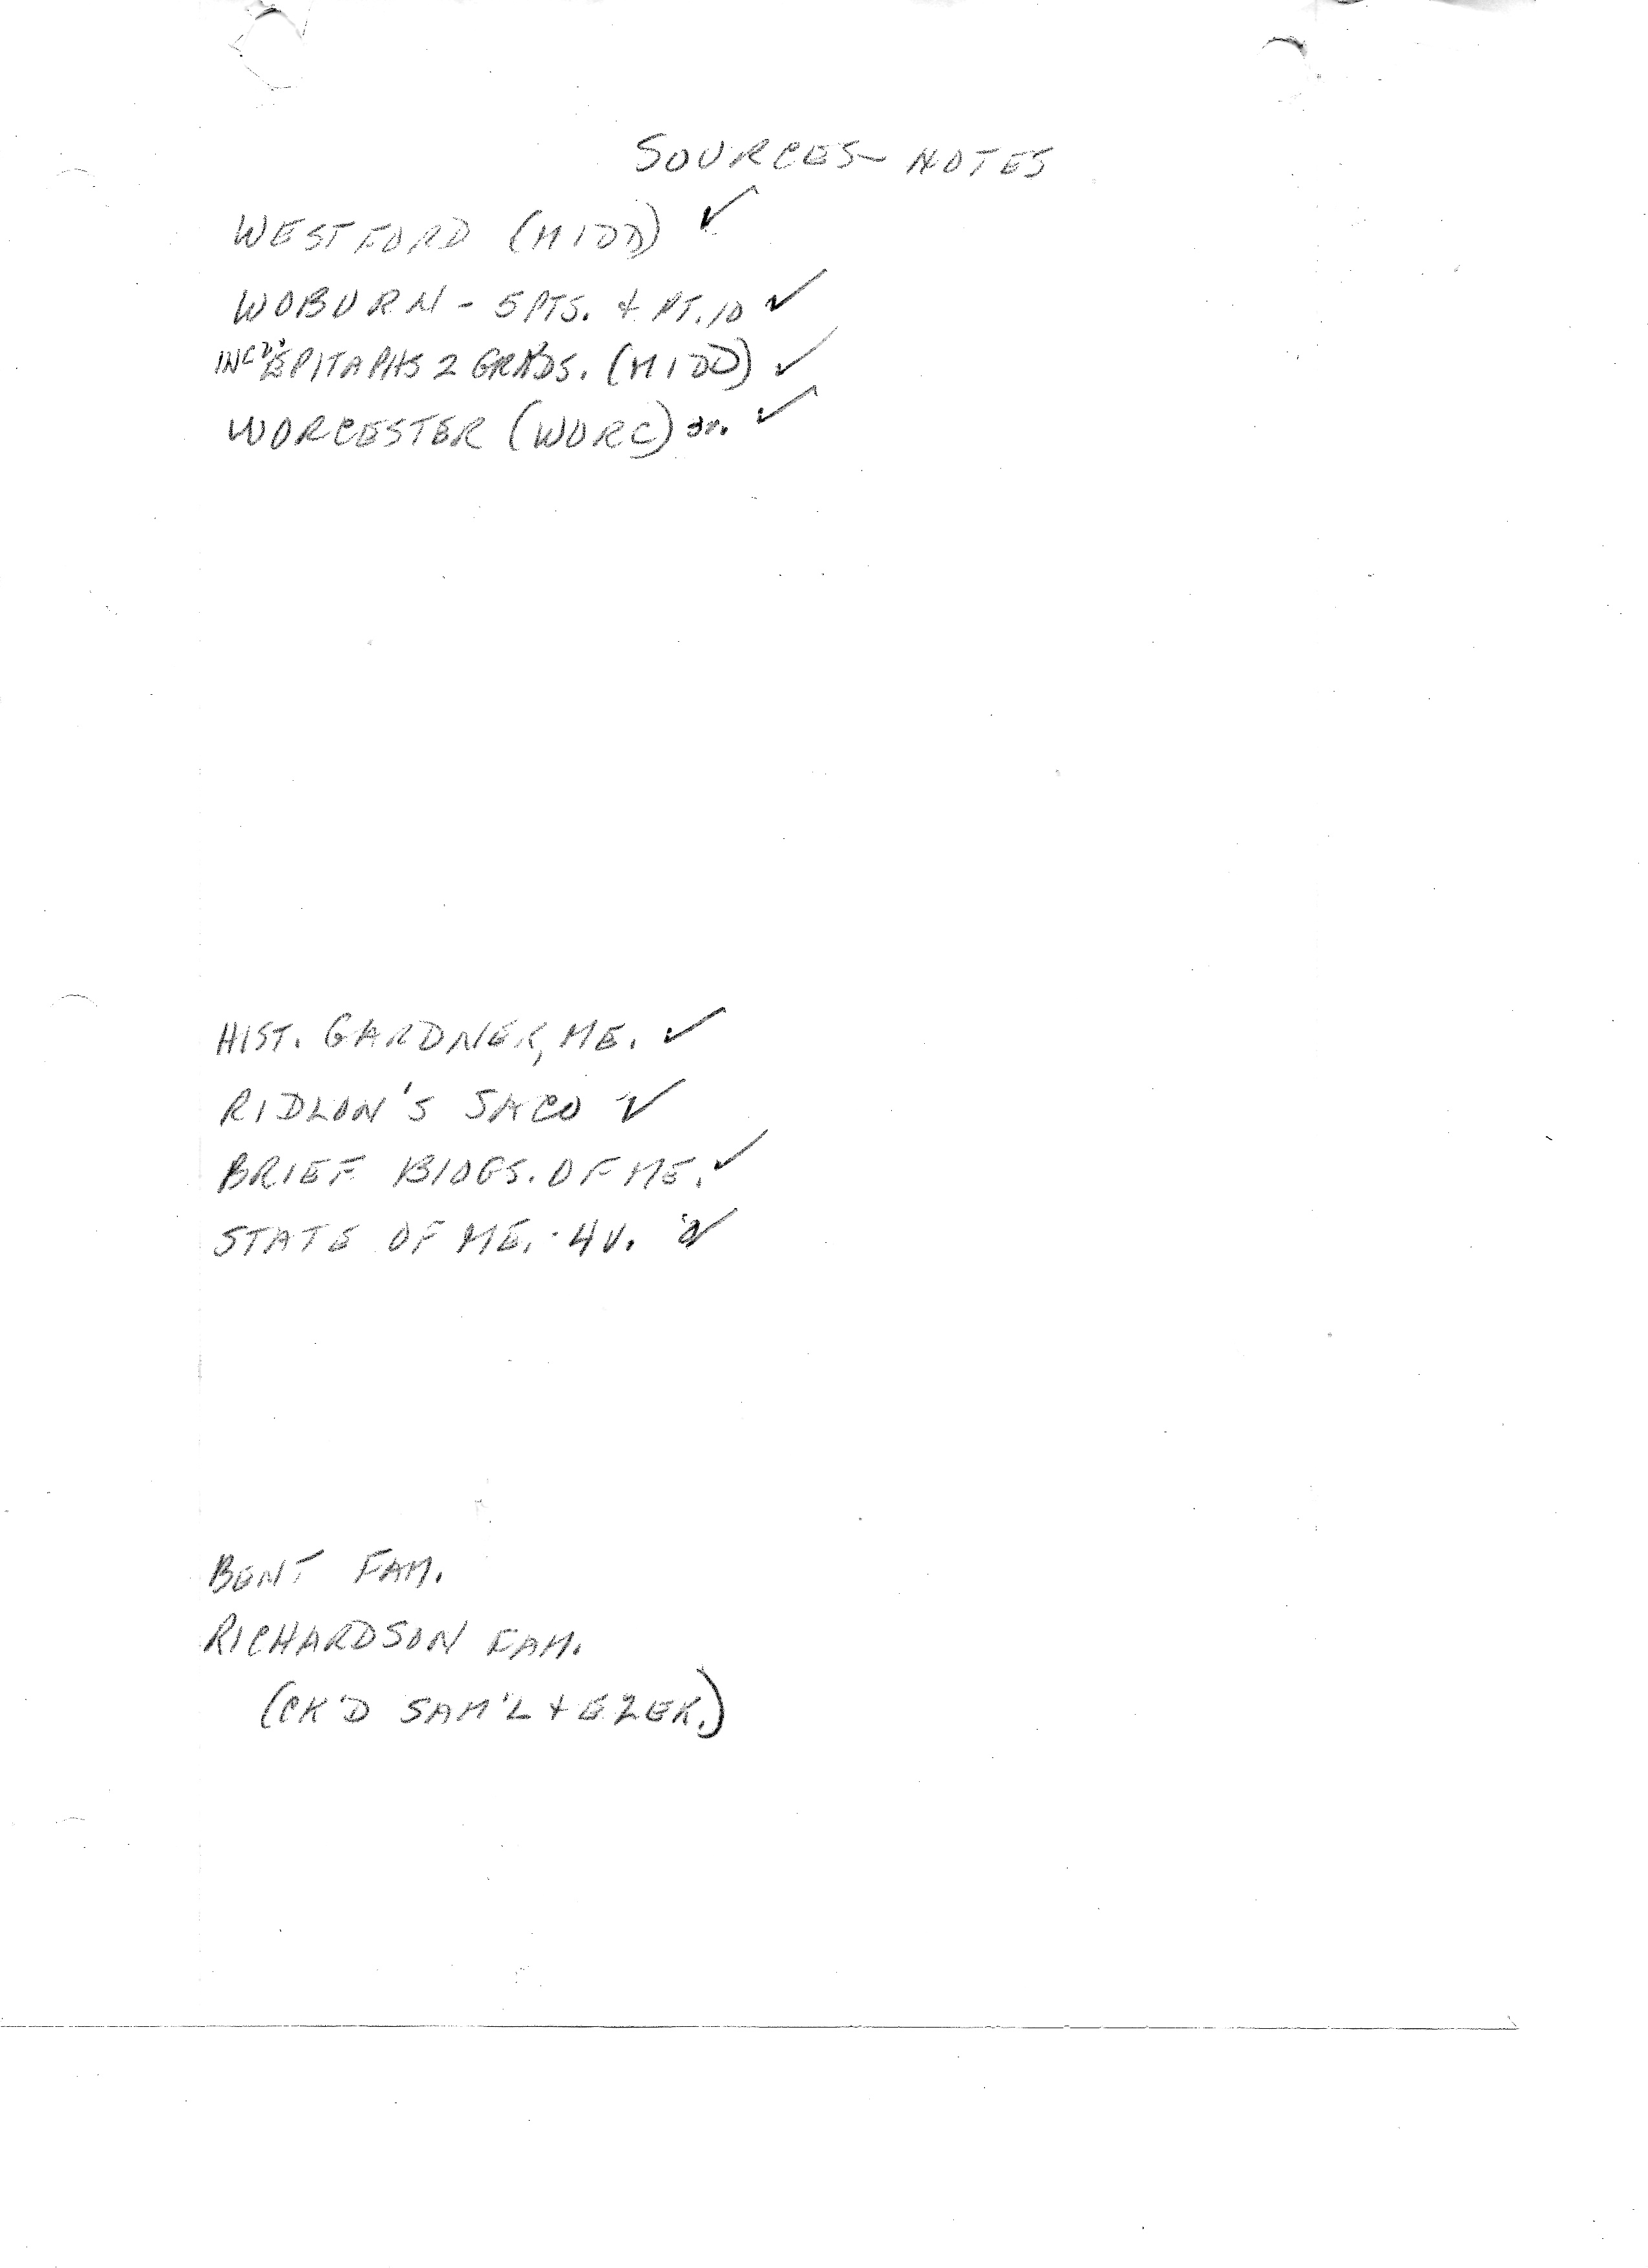 SOURCES - NOTES
WESTFORD (MIDD) ✓
WOBURN - 5 PTS. + PT. 10 ✓
EPITAPHS 2 GRYDS. (MIDD) ✓
WORCESTER (WORC) ✓
HIST. GARDNER, ME. ✓
RIDLON'S SACO ✓
BRIEF BIOGS. OF ME. ✓
STATE OF ME. - 4 V. ✓
BENT FAM.
RICHARDSON FAM.
(CK'D SAM'L + EZEK.)